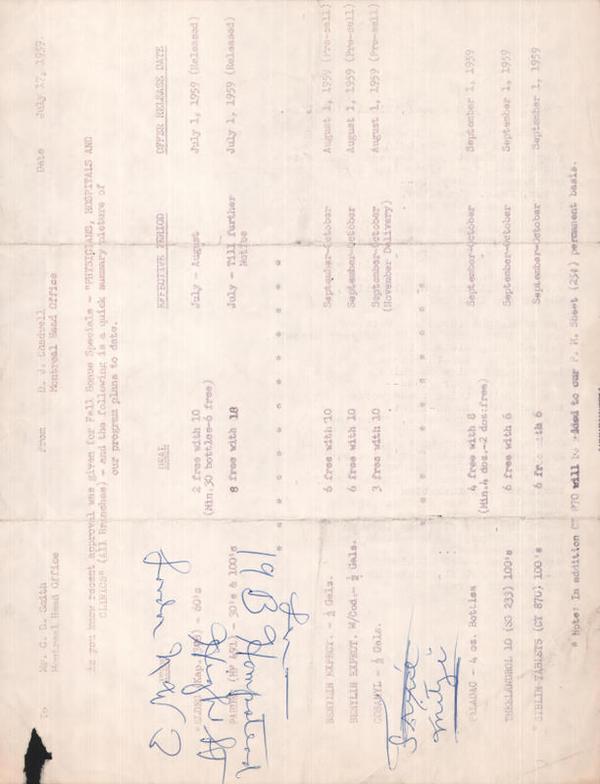 To Mr. C. D. Smith From D. J. Chadwell Date July 17, 1959.
Montreal Head Office Montreal Head Office
As you know recent approval was given for Fall Bonus Specials - "PHYSICIANS, HOSPITALS AND
CLINICS" (All Branches) - and the following is a quick summary picture of
our program plans to date.
DEAL EFFECTIVE PERIOD OFFER RELEASE DATE
- 60's 2 free with 10 July - August July 1, 1959 (Released)
(Min.30 bottles-6 free)
- 30's & 100's 8 free with 18 July - Till further July 1, 1959 (Released)
Notice
* * * * * * * * *
BENYLIN EXPECT. - ½ Gals. 6 free with 10 September-October August 1, 1959 (Pre-sell)
BENYLIN EXPECT. W/Cod.- ½ Gals. 6 free with 10 September-October August 1, 1959 (Pre-sell)
COSANYL - ½ Gals. 3 free with 10 September-October August 1, 1959 (Pre-sell)
(November Delivery)
* * * * * * *
PALADAC - 4 oz. Bottles 4 free with 8 September-October September 1, 1959
(Min.4 doz.-2 doz.free)
THEELANDROL 10 (SS 233) 100's 6 free with 6 September-October September 1, 1959
SIBLIN TABLETS (CT 870) 100's 6 free with 6 September-October September 1, 1959
* Note: In addition CT 870 will be added to our P. H. Sheet (25¢) permanent basis.
19 B